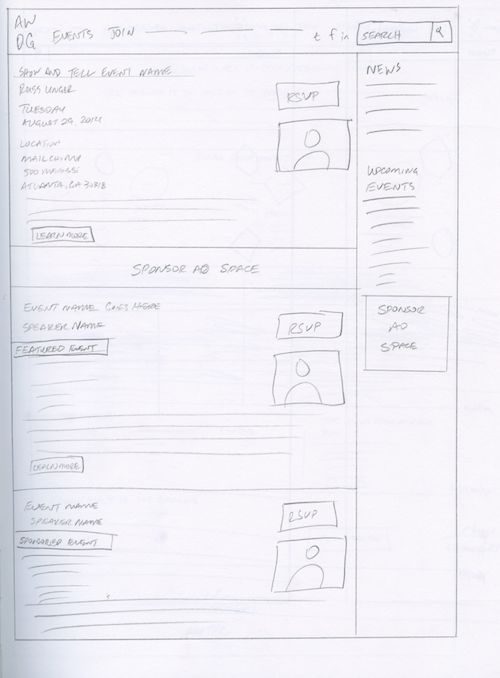 AW
DG EVENTS JOIN t f in SEARCH
SHOW AND TELL EVENT NAME
RUSS UNGER
RSVP
TUESDAY
AUGUST 29, 2014
LOCATION
MAILCHIMP
ATLANTA, GA 30318
LEARN MORE
SPONSOR AD SPACE
EVENT NAME GOES HERE
SPEAKER NAME
RSVP
FEATURED EVENT
LEARN MORE
EVENT NAME
SPEAKER NAME
RSVP
SPONSORED EVENT
NEWS
UPCOMING
EVENTS
SPONSOR
AD
SPACE